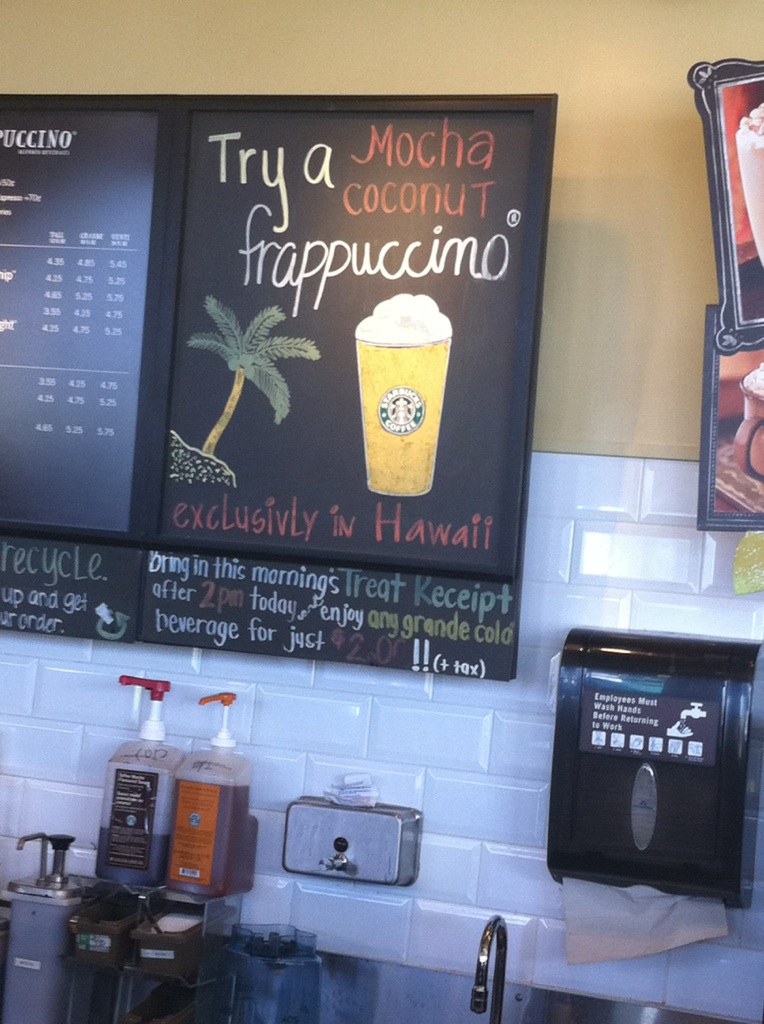 PUCCINO®
TALL GRANDE VENTI
4.35 4.85 5.45
4.25 4.75 5.25
4.65 5.25 5.75
3.55 4.25 4.75
4.25 4.75 5.25
3.55 4.25 4.75
4.25 4.75 5.25
4.65 5.25 5.75
Try a Mocha
coconut
frappuccino®
STARBUCKS
COFFEE
exclusivly in Hawaii
recycle.
up and get
ur order.
Bring in this morning's Treat Receipt
after 2pm today enjoy any grande cold
beverage for just $2.00!! (+ tax)
Employees Must
Wash Hands
Before Returning
to Work